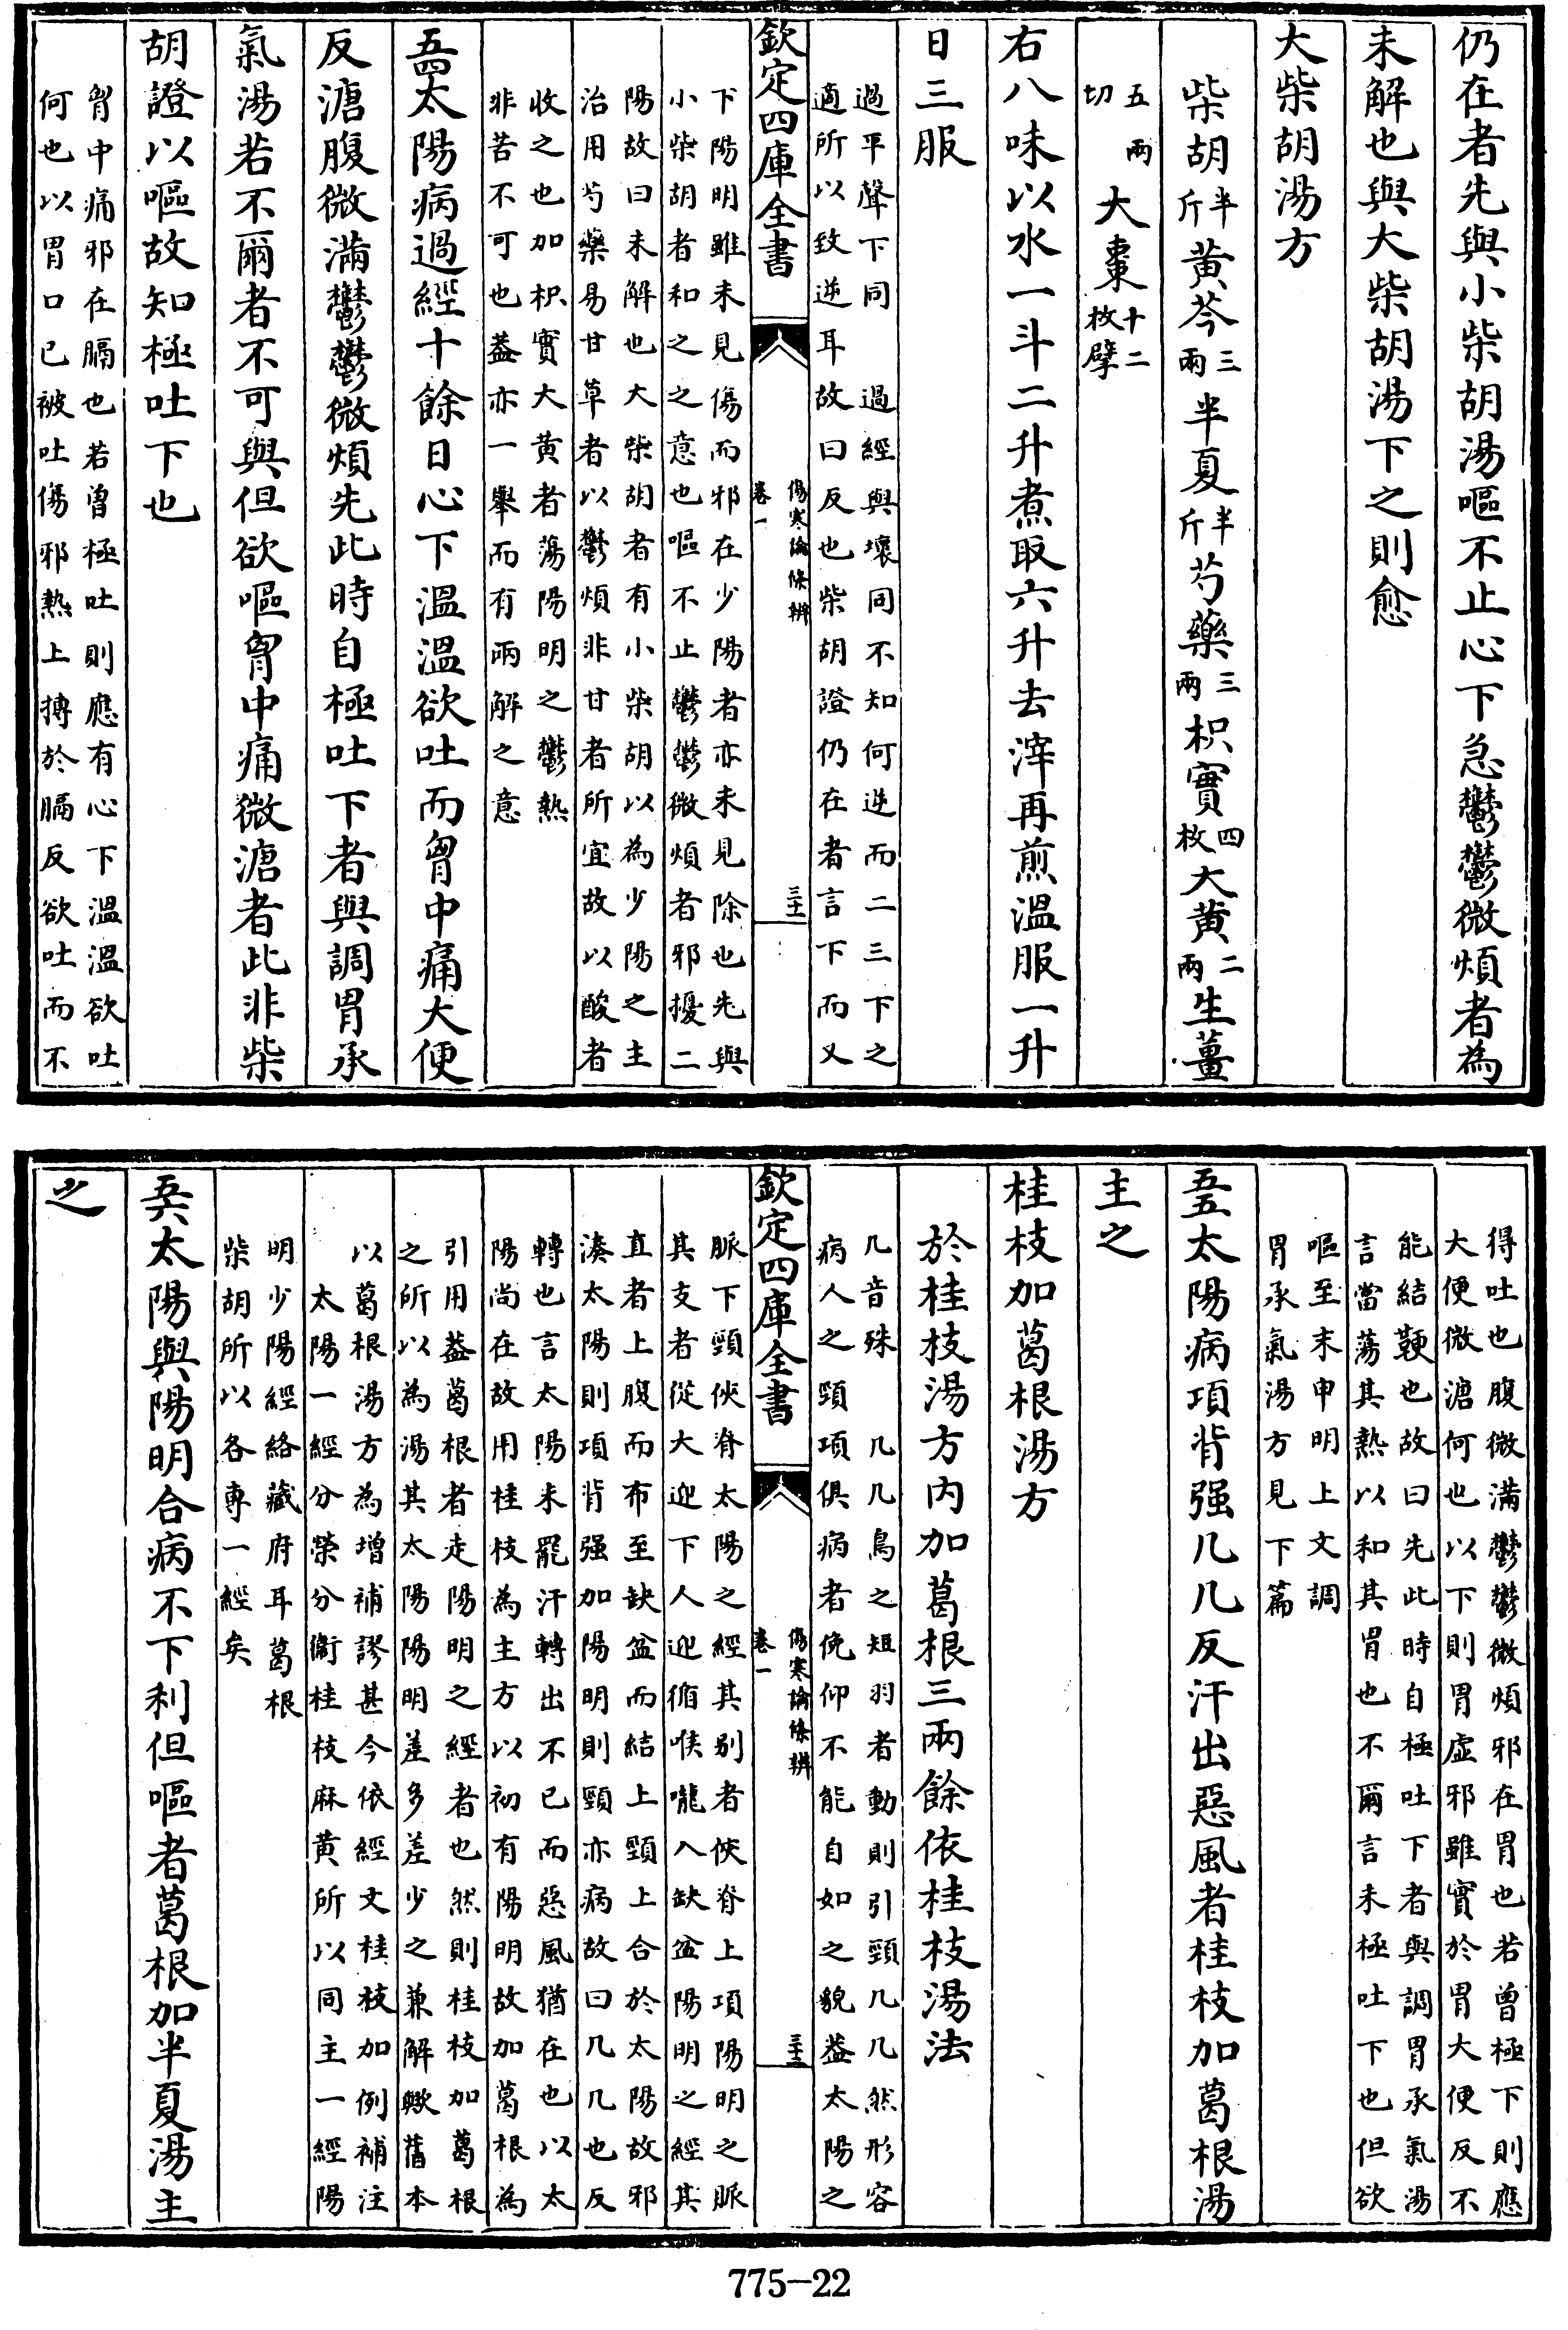 仍在者先與小柴胡湯嘔不止心下急鬱鬱微煩者為
未解也與大柴胡湯下之則愈
大柴胡湯方
柴胡半斤黃芩三兩半夏半斤芍藥三兩枳實四枚大黃二兩生薑
五兩切大棗十二枚擘
右八味以水一斗二升煮取六升去滓再煎溫服一升
日三服
過平聲下同　過經與壞同不知何逆而二三下之
適所以致逆耳故曰反也柴胡證仍在者言下而又
欽定四庫全書
傷寒論條辨
卷一
三十一
下陽明雖未見傷而邪在少陽者亦未見除也先與
小柴胡者和之之意也嘔不止鬱鬱微煩者邪擾二
陽故曰未解也大柴胡者有小柴胡以為少陽之主
治用芍藥易甘草者以鬱煩非甘者所宜故以酸者
收之也加枳實大黃者蕩陽明之鬱熱
非苦不可也葢亦一舉而有兩解之意
五四太陽病過經十餘日心下溫溫欲吐而胷中痛大便
反溏腹微滿鬱鬱微煩先此時自極吐下者與調胃承
氣湯若不爾者不可與但欲嘔胷中痛微溏者此非柴
胡證以嘔故知極吐下也
胷中痛邪在膈也若曾極吐則應有心下溫溫欲吐
何也以胃口已被吐傷邪熱上搏於膈反欲吐而不
得吐也腹微滿鬱鬱微煩邪在胃也若曾極下則應
大便微溏何也以下則胃虛邪雖實於胃大便反不
能結鞕也故曰先此時自極吐下者與調胃承氣湯
言當蕩其熱以和其胃也不爾言未極吐下也但欲
嘔至末申明上文調
胃承氣湯方見下篇
五五太陽病項背强几几反汗出惡風者桂枝加葛根湯
主之
桂枝加葛根湯方
於桂枝湯方内加葛根三兩餘依桂枝湯法
几音殊　几几鳥之短羽者動則引頸几几然形容
病人之頸項俱病者俛仰不能自如之貌葢太陽之
欽定四庫全書
傷寒論條辨
卷一
三十二
脈下頸俠脊太陽之經其别者俠脊上項陽明之脈
其支者從大迎下人迎循喉嚨入缺盆陽明之經其
直者上腹而布至缺盆而結上頸上合於太陽故邪
湊太陽則項背强加陽明則頸亦病故曰几几也反
轉也言太陽未罷汗轉出不已而惡風猶在也以太
陽尚在故用桂枝為主方以初有陽明故加葛根為
引用葢葛根者走陽明之經者也然則桂枝加葛根
之所以為湯其太陽陽明差多差少之兼解歟舊本
以葛根湯方為增補謬甚今依經文桂枝加例補注
太陽一經分榮分衞桂枝麻黃所以同主一經陽
明少陽經絡藏府耳葛根
柴胡所以各專一經矣
五六太陽與陽明合病不下利但嘔者葛根加半夏湯主
之
775-22